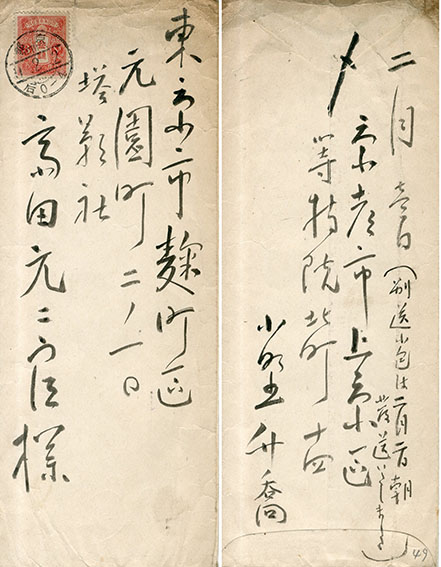 東京市麹町区
元園町二ノ一〇
塔影社
斎田元次郎様
二月壱日(別送小包は二月二日朝
発送いたしました)
〆
京都市上京区
等持院北町
小野竹喬
49